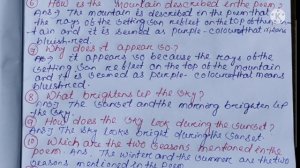 ⑥ How is the Mountain described in the poem?
Ans⇒ The mountain is described in the poem that
the rays of the Setting Sun reflect on the top of the moun-
tain and it is seemed as purple-colour that means
blushred.
⑦ Why does it appear so?
A⇒ it appears so because the rays of the
Setting Son reflect on the top of the mountain
and it is seemed as purple-colour that means
blushred.
⑧ What brightens up the Sky?
Ans⇒ The Sunset and the morning brighten up
the Sky.
⑨ How does the Sky look during the Sunset?
Ans⇒ The Sky looks bright during the Sunset
⑩ Which are the two Seasons mentioned in the
poem Ans⇒ The Winter and the Summer are the two
Seasons mentioned in the poem